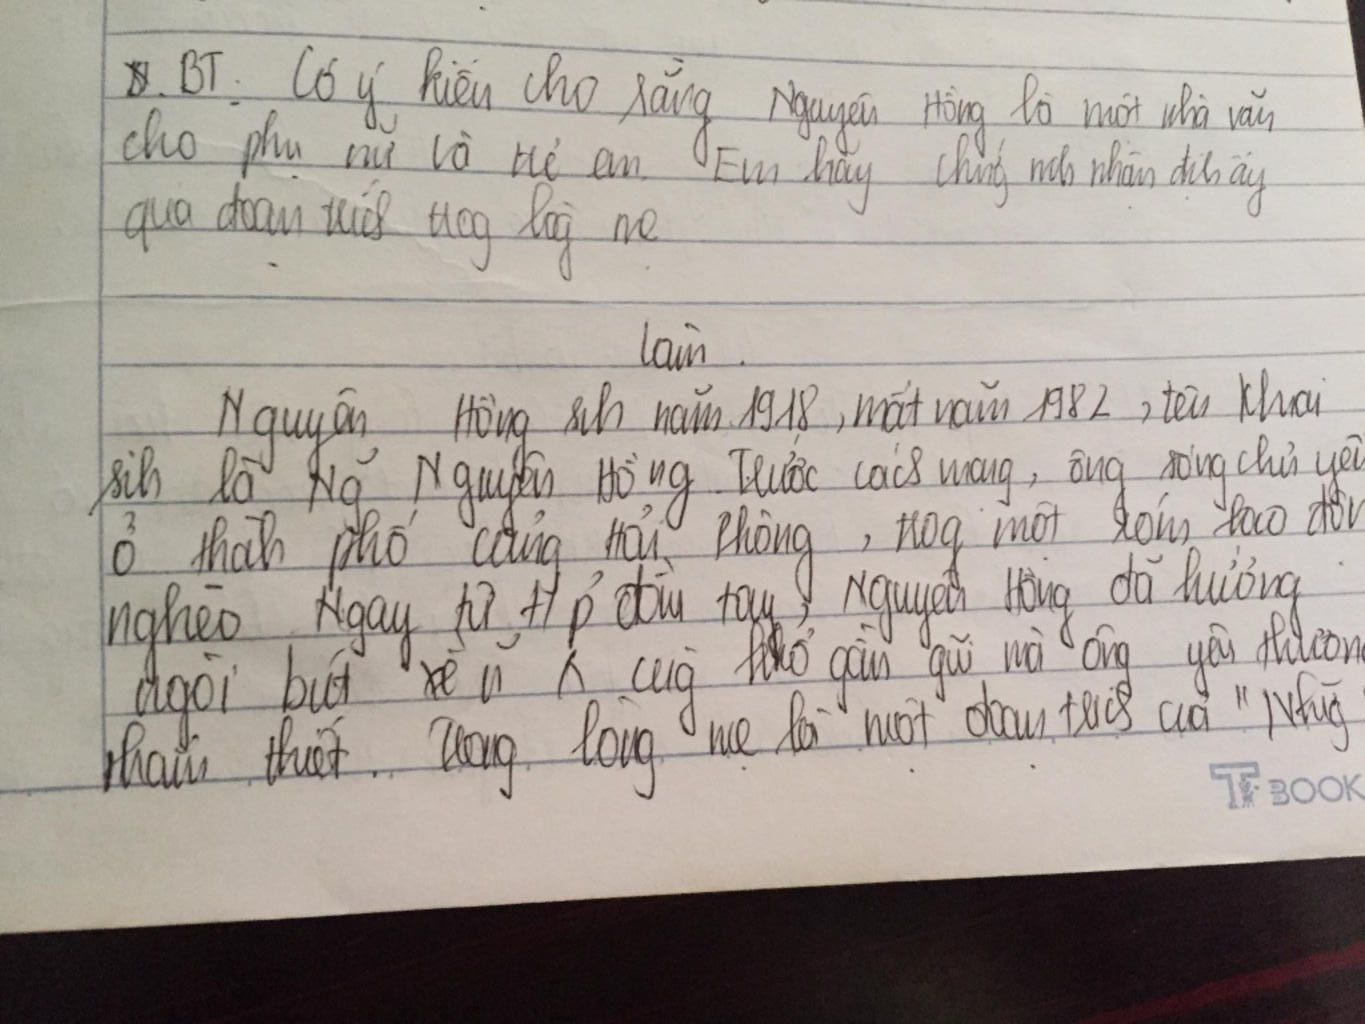 BT. Có ý kiến cho rằng Nguyên Hồng là một nhà văn
cho phụ nữ và trẻ em. Em hãy chứng mih nhận địh ấy
qua đoạn trích trog lòg mẹ
Làm.
Nguyên Hồng sih năm 1918, mất năm 1982, tên khai
sih là Ng~ Nguyên Hồng. Trước cách mạng, ông sống chủ yếu
ở thàh phố cảng Hải Phòng, trog một xóm lao độn
nghèo Ngay từ t/p đầu tay, Nguyên Hồng đã hướng
ngòi bút về n~ k cùg khổ gần gũi mà ông yêu thươn
thắm thiết. Trong lòng mẹ là một đoạn trích của "Nhữg
BOOK